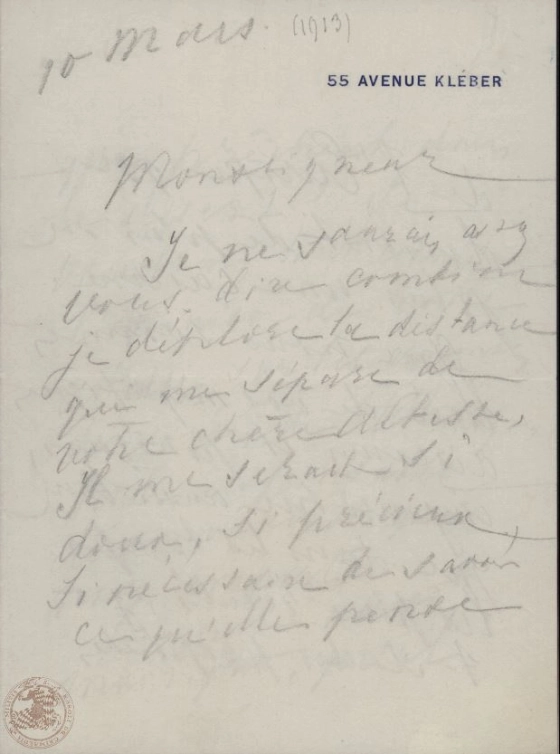 10 Mars. (1913)
55 AVENUE KLÉBER
Monseigneur
Je ne saurais assez
vous dire combien
je déplore la distance
qui me sépare de
votre chère Altesse,
Il me serait si
doux, si précieux,
si nécessaire de savoir
ce qu'elle pense